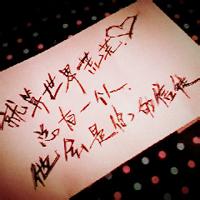 就算世界荒芜
总有一个人
他会是你的信徒